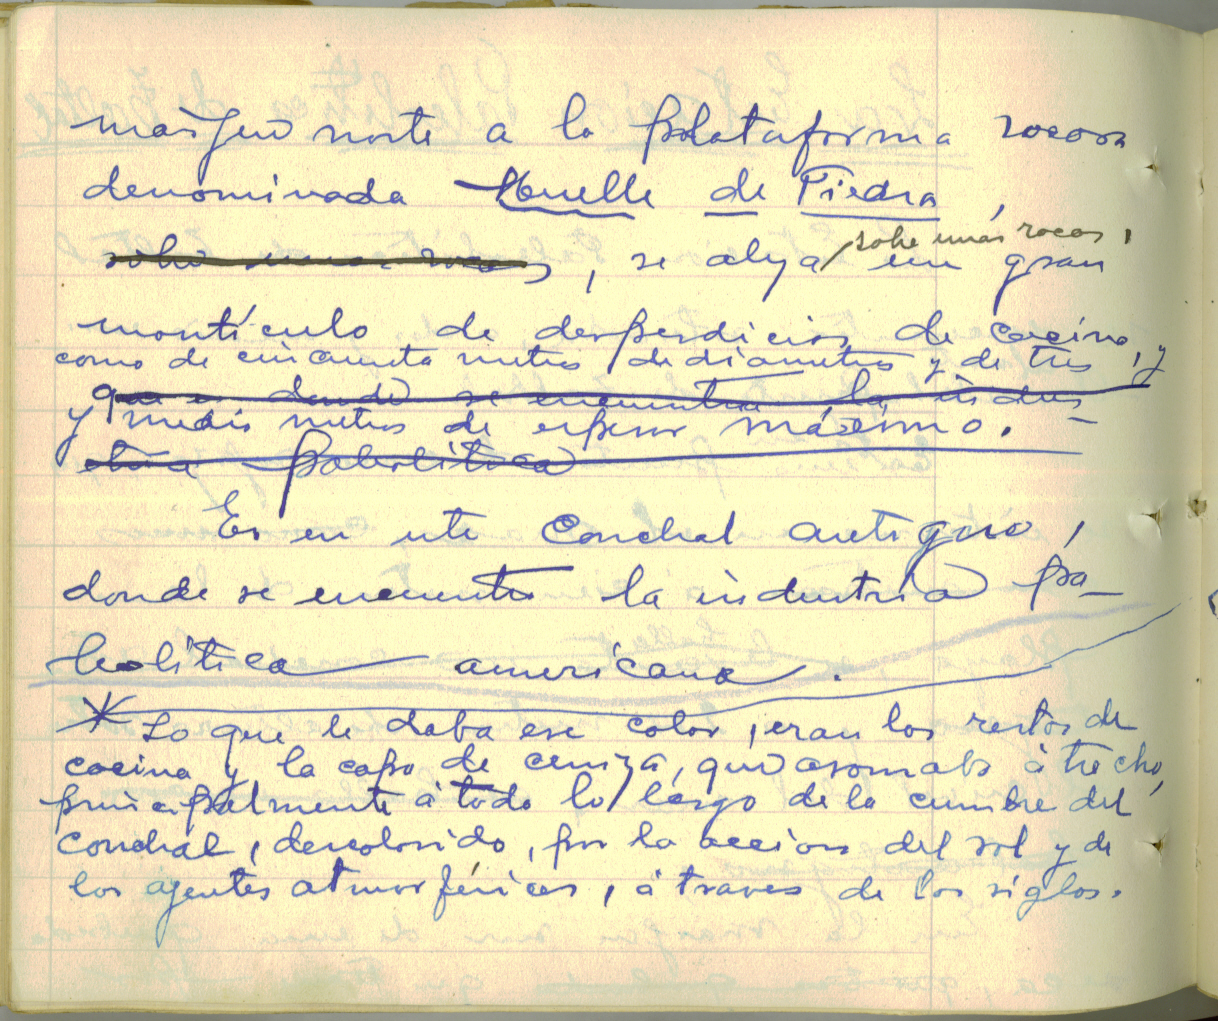 margen norte a la plataforma rocosa
denominada Muelle de Piedra,
sobre unas rocas, se aleja / sobre unas rocas, un gran
montículo de desperdicios de cocina, y
como de cincuenta metros de diametro y de tres
que es donde se encuentra la indus-
y medio metros de espesor máximo.
tria paleolítica
Es en este Conchal antiguo,
donde se encuentra la industria pa-
leolítica americana.
* Lo que le daba ese color, eran los restos de
cocina y la capa de ceniza, que asomaba à trecho,
principalmente à todo lo largo de la cumbre del
conchal, descolorido, por la accion del sol y de
los agentes atmosféricos, à traves de los siglos.